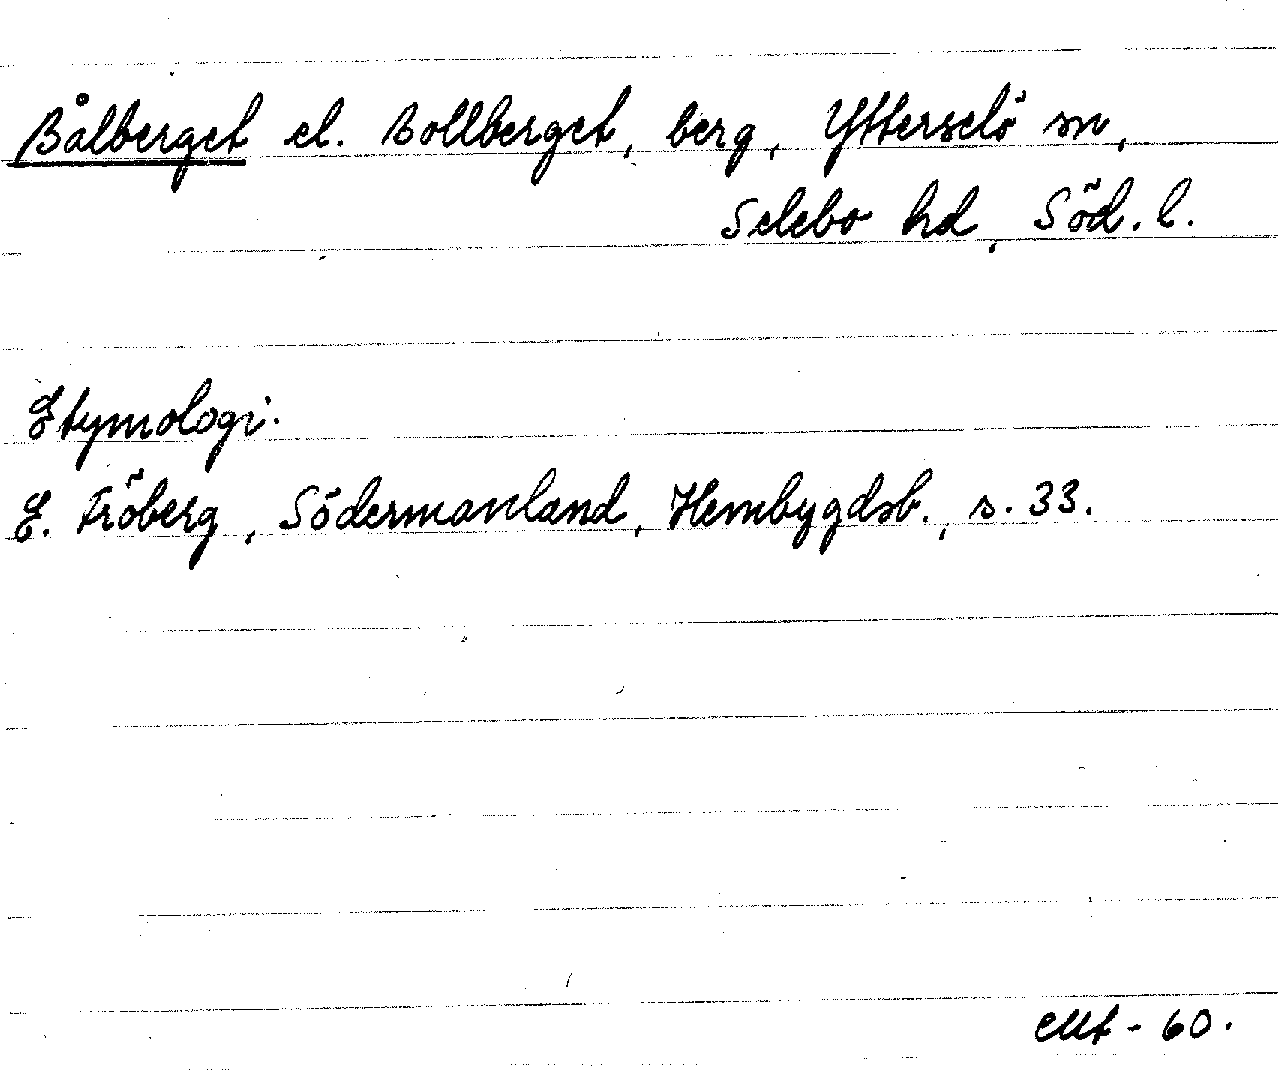 Bålberget el. Bollberget, berg, Ytterselö sn,
Selebo hd, Söd. l.
Etymologi.
E. Fröberg, Södermanland, Hembygdsb., s. 33.
- 60.